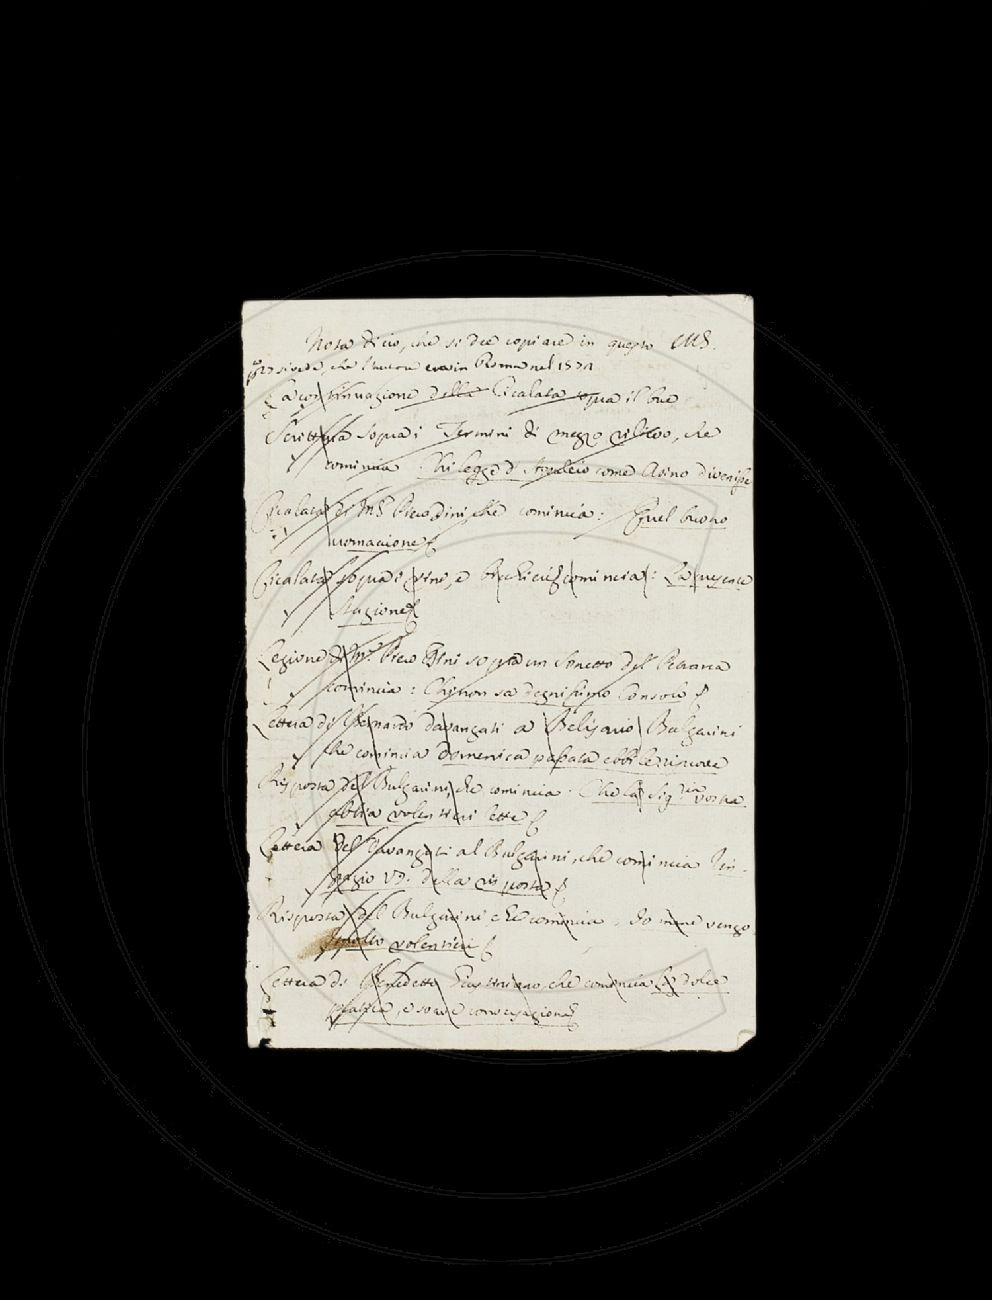 Nota di ciò, che si dee copiare in questo MS.
si vede, che l'Autore era in Roma nel 1571
La continuazione della Cicalata sopra il bue
Scrittura sopra i Termini di mezzo rilievo, che
comincia Chi legge d'Apuleio come Asino divenisse
Cicalata di che comincia: Quel buono
uomaccione &
Cicalata sopra i vini, e comincia: La presente
stagione &
Lezione di sopra un Sonetto del Petrarca
comincia: Chi non sa degnissimo Consolo &
Lettera di Bernardo Davanzati a Belisario Bulgarini
che comincia Domenica passata ebbi le
Risposta del Bulgarini, che comincia. Che la Sig.ria vostra
abbia volentieri letta &
Lettera del Davanzati al Bulgarini, che comincia Rin-
grazio VS. della risposta &
Risposta del Bulgarini che comincia, Io vengo
molto volentieri &
Lettera di Benedetto che comincia La dolce
pratica, e soave conversazione &